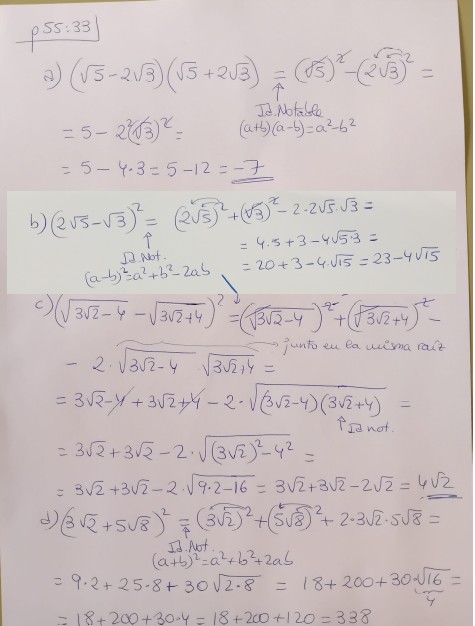 p55:33
a) (√5-2√3)(√5+2√3) = (√5)²-(2√3)² =
Id. Notable
(a+b)(a-b)=a²-b²
= 5-2²(√3)² =
= 5-4·3 = 5-12 = -7
b) (2√5-√3)² = (2√5)²+(√3)²-2·2√5·√3 =
Id. Not.
(a-b)²=a²+b²-2ab
= 4·5+3-4√5·3 =
= 20+3-4·√15 = 23-4√15
c) (√3√2-4 - √3√2+4)² = (√3√2-4)²+(√3√2+4)² -
junto en la misma raíz
- 2·√3√2-4 √3√2+4 =
= 3√2-4+3√2+4-2·√(3√2-4)(3√2+4) =
Id not.
= 3√2+3√2-2·√(3√2)²-4² =
= 3√2+3√2-2·√9·2-16 = 3√2+3√2-2√2 = 4√2
d) (3√2+5√8)² = (3√2)²+(5√8)²+2·3√2·5√8 =
Id. Not.
(a+b)²=a²+b²+2ab
= 9·2+25·8+30√2·8 = 18+200+30·√16 =
4
= 18+200+30·4 = 18+200+120 = 338